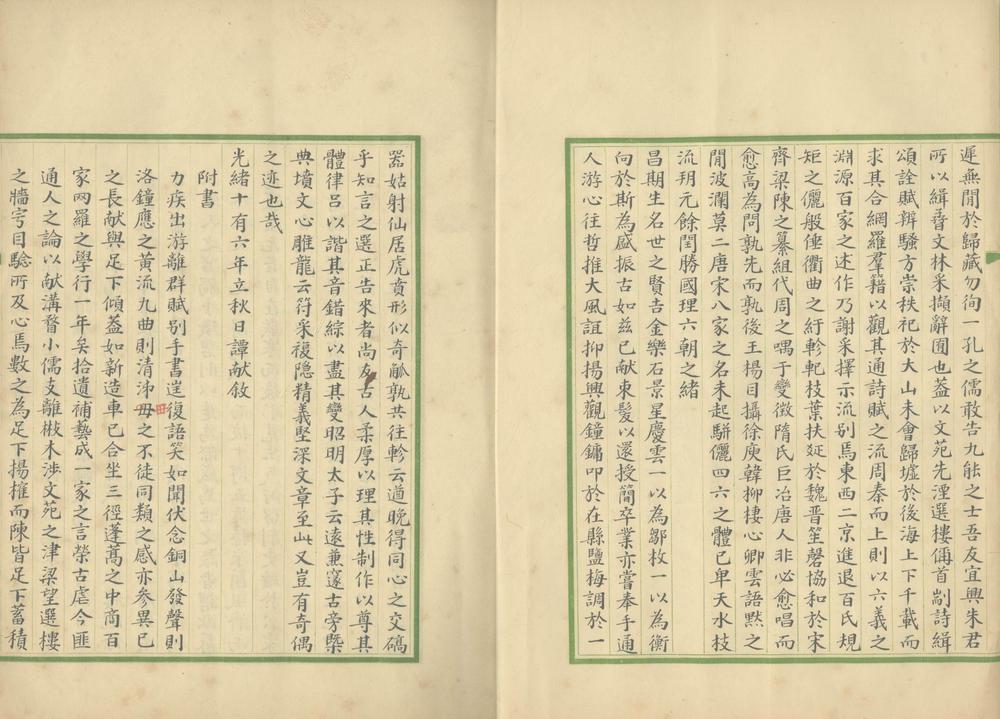 遲無閒於歸藏勿徇一孔之儒敢告九能之士吾友宜興朱君
所以緝香文林采擷辭囿也葢以文苑先湮選樓偁首剬詩緝
頌詮賦辨騷方崇秩祀於大山未會歸墟於後海上下千載而
求其合網羅羣籍以觀其通詩賦之流周秦而上則以六義之
淵源百家之述作乃謝采擇示流别焉東西二京進退百氏規
矩之儷般倕衢曲之紆軫軛枝葉扶疏於魏晉笙磬協和於宋
齊梁陳之纂組代周之喁于變徵隋氏巨冶唐人非必愈唱而
愈高為問孰先而孰後王楊目攝徐庾韓柳棲心卿雲語默之
閒波瀾莫二唐宋八家之名未起駢儷四六之體已卑天水枝
流玥元餘閏勝國理六朝之緒
昌期生名世之賢吉金樂石景星慶雲一以為鄒枚一以為衡
向於斯為盛振古如茲已献束髮以還授簡卒業亦嘗奉手通
人游心往哲推大風誼抑揚興觀鐘鏞叩於在縣鹽梅調於一
器姑射仙居虎賁形似奇觚孰共往軫云遒晚得同心之交碻
乎知言之選正告來者尚友古人柔厚以理其性制作以尊其
體律呂以諧其音錯綜以盡其變昭明太子云遠兼邃古旁槩
典墳文心雕龍云符采複隱精義堅深文章至此又豈有奇偶
之迹也哉
光緒十有六年立秋日譚献敘
附書
力疾出游離群賦別手書遝復語笑如聞伏念銅山發聲則
洛鐘應之黄流九曲則清泲毋之不徒同類之感亦參異已
之長献與足下傾葢如新造車已合坐三徑蓬蒿之中商百
家网羅之學行一年矣拾遺補藝成一家之言榮古虐今匪
通人之論以献溝瞀小儒支離樕木涉文苑之津梁望選樓
之牆宇目騐所及心焉數之為足下揚搉而陳皆足下蓄積